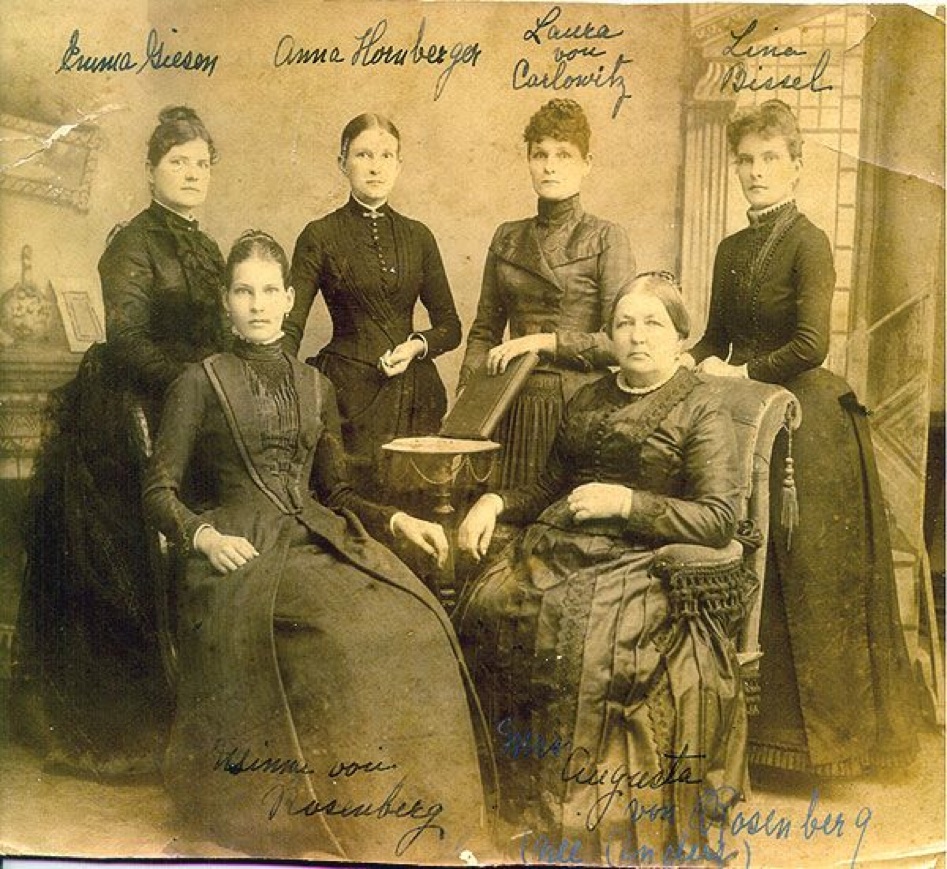 Emma Giesen
Anna Hornberger
Laura
von
Carlowitz
Lina
Bissel
Minna von
Rosenberg
Mrs
Augusta
von Rosenberg
(nee Anders)